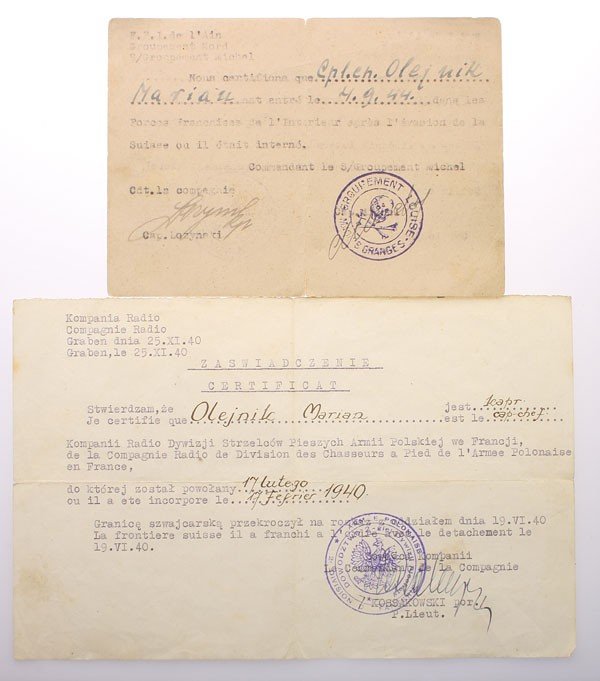 F.F.I. de l'Ain
Groupement Nord
S/Groupement Michel
Nous certifions que Cpl.ch. Olejnik
Marian ont entré le 4.9.44 dans les
Forces Françaises de l'Interieur après l'évasion de la
Suisse ou il était interné.
Commandant le S/Groupement Michel
Cdt.la compagnie
GROUPEMENT LOUISE
GRANGES
Cap.Łozynski
Kompania Radio
Compagnie Radio
Graben dnia 25.XI.40
Graben,le 25.XI.40
ZASWIADCZENIE
CERTIFICAT
Stwierdzam,że Olejnik Marian jest kapr
Je certifie que est le cap-chef
Kompanii Radio Dywizji Strzelców Pieszych Armii Polskiej we Francji,
de la Compagnie Radio de Division des Chasseurs a Pied de l'Armee Polonaise
en France,
do której został powołany 17 lutego
ou il a ete incorpore le 17 Fevrier 1940.
Granicę szwajcarską przekroczył na z oddziałem dnia 19.VI.40
La frontiere suisse il a franchi a le detachement le
19.VI.40.
Kompanii
Le Commandant de la Compagnie
KOSSAKOWSKI por.
P.Lieut.